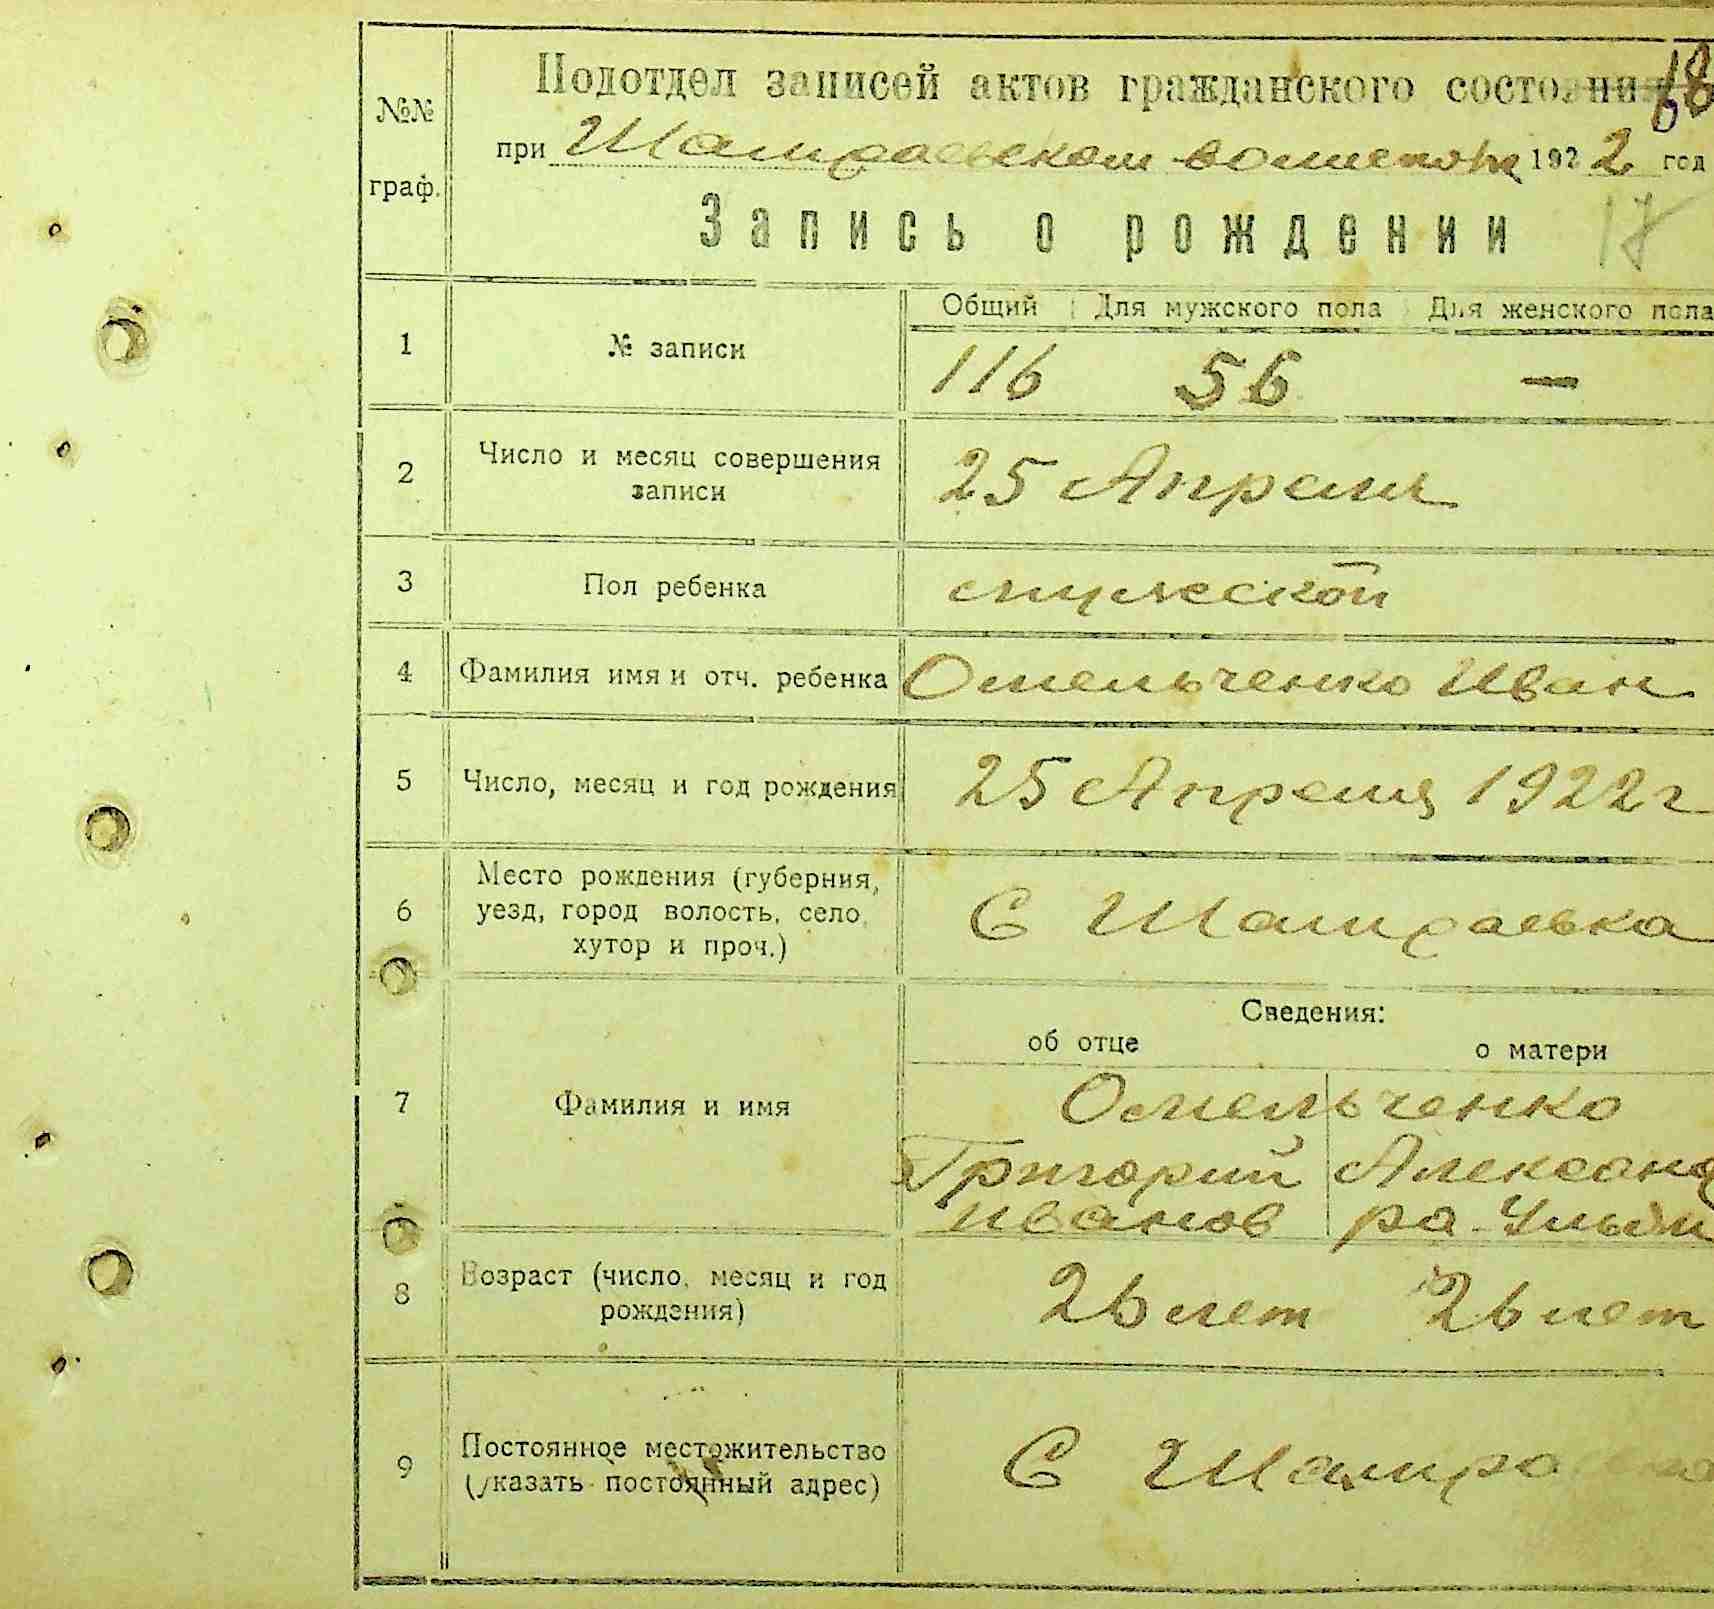 №№ граф.
Подотдел записей актов гражданского состояния
18
при Шамраевском волисполк 1922 год
Запись о рождении
17
Общий Для мужского пола Для женского пола
1 № записи 116 56 —
2 Число и месяц совершения
записи
25 Апреля
3 Пол ребенка мужеской
4 Фамилия имя и отч. ребенка Омельченко Иван
5 Число, месяц и год рождения 25 Апреля 1922 г
6 Место рождения (губерния,
уезд, город волость, село,
хутор и проч.)
С Шамраевка
Сведения:
об отце о матери
7 Фамилия и имя
Омельченко
Григорий Александ
Иванов ра Ульян
8 Возраст (число, месяц и год
рождения)
26 лет 26 лет
9 Постоянное местожительство
(указать постоянный адрес)
С Шамраевка